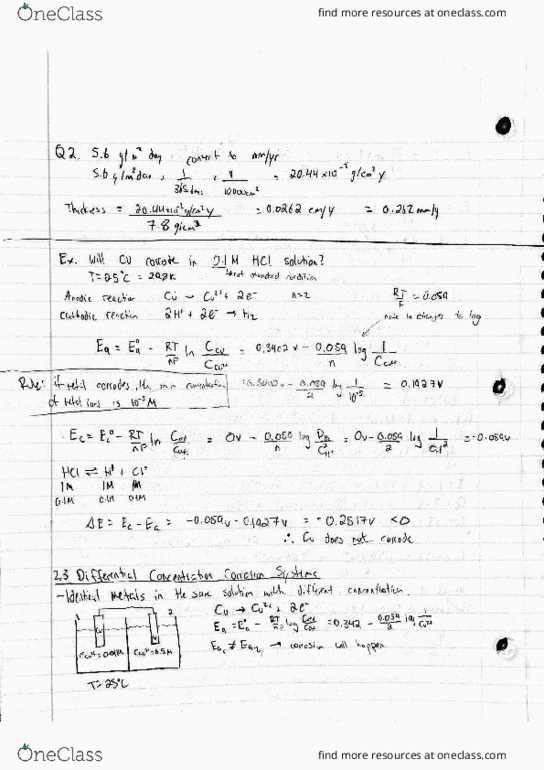 OneClass
find more resources at oneclass.com
Q2. 5.6 g/m² day convert to mm/yr
5.6 g/m² day · 1/365 days · 1/10000cm² = 20.44 x10⁻² g/cm² y
Thickness = 20.44x10⁻² g/cm² y / 7.8 g/cm³ = 0.0262 cm/y = 0.262 mm/y
Ex. Will Cu corrode in 0.1M HCl solution?
T=25°C = 298K not standard condition
Anodic reaction Cu → Cu²⁺ + 2e⁻ n=2 RT/F = 0.059
Cathodic reaction 2H⁺ + 2e⁻ → H₂ note ln changes to log
Ea = E°a - RT/nF ln Ccu/Ccu²⁺ = 0.3402 v - 0.059/n log 1/Ccu²⁺
Rule: if metal corrodes, the min concentration = 0.3402 - 0.059/2 log 1/10⁻⁵ = 0.1927v
of metal ions is 10⁻⁵M
Ec = E°c - RT/nF ln = 0v - 0.059/n log = 0v - 0.059/2 log 1/0.1² = -0.059v
HCl ⇌ H⁺ + Cl⁻
1M 1M 1M
0.1M 0.1M 0.1M
ΔE = Ec - Ea = -0.059v - 0.1927v = -0.2517v <0
∴ Cu does not corrode
2.3 Differential Concentration Corrosion Systems
- Identical metals in the same solution with different concentration.
1 2 Cu → Cu²⁺ + 2e⁻
Ea = E°a - RT/nF log = 0.342 - 0.059/2 log 1/Ccu²⁺
Ccu²⁺=0.01M Ccu²⁺=0.5M Ea₁ ≠ Ea₂ → corrosion will happen
T=25°C
OneClass
find more resources at oneclass.com